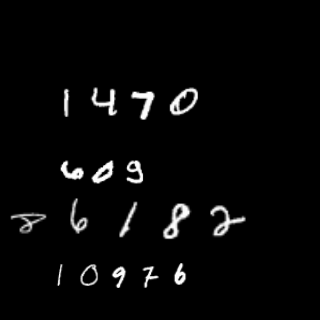 1470
609
86182
10976